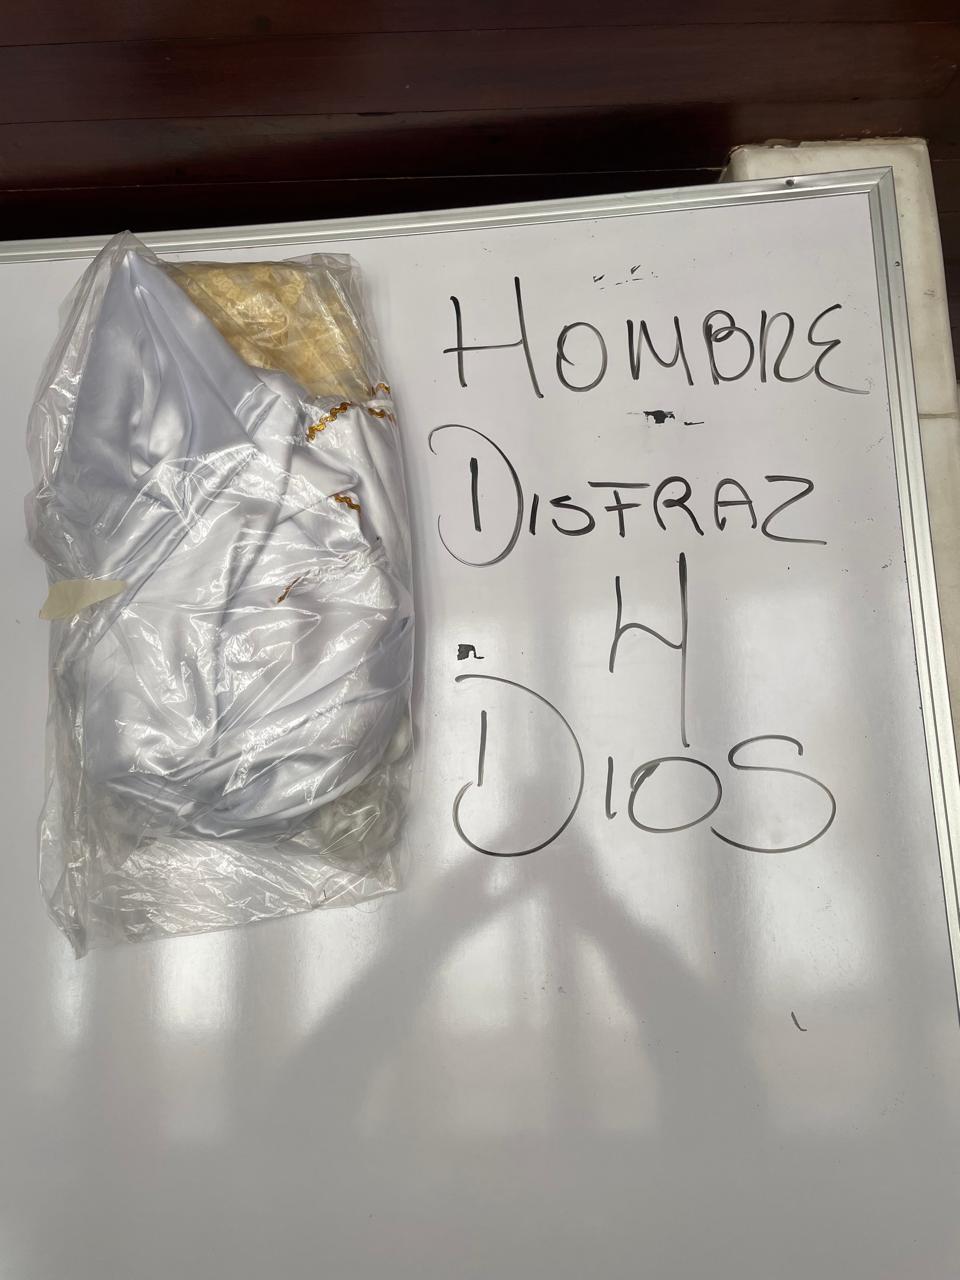 HOMBRE
DISFRAZ
4
DIOS